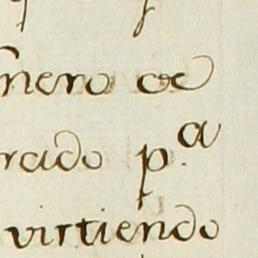 nero de
rcido p.ª
virtiendo